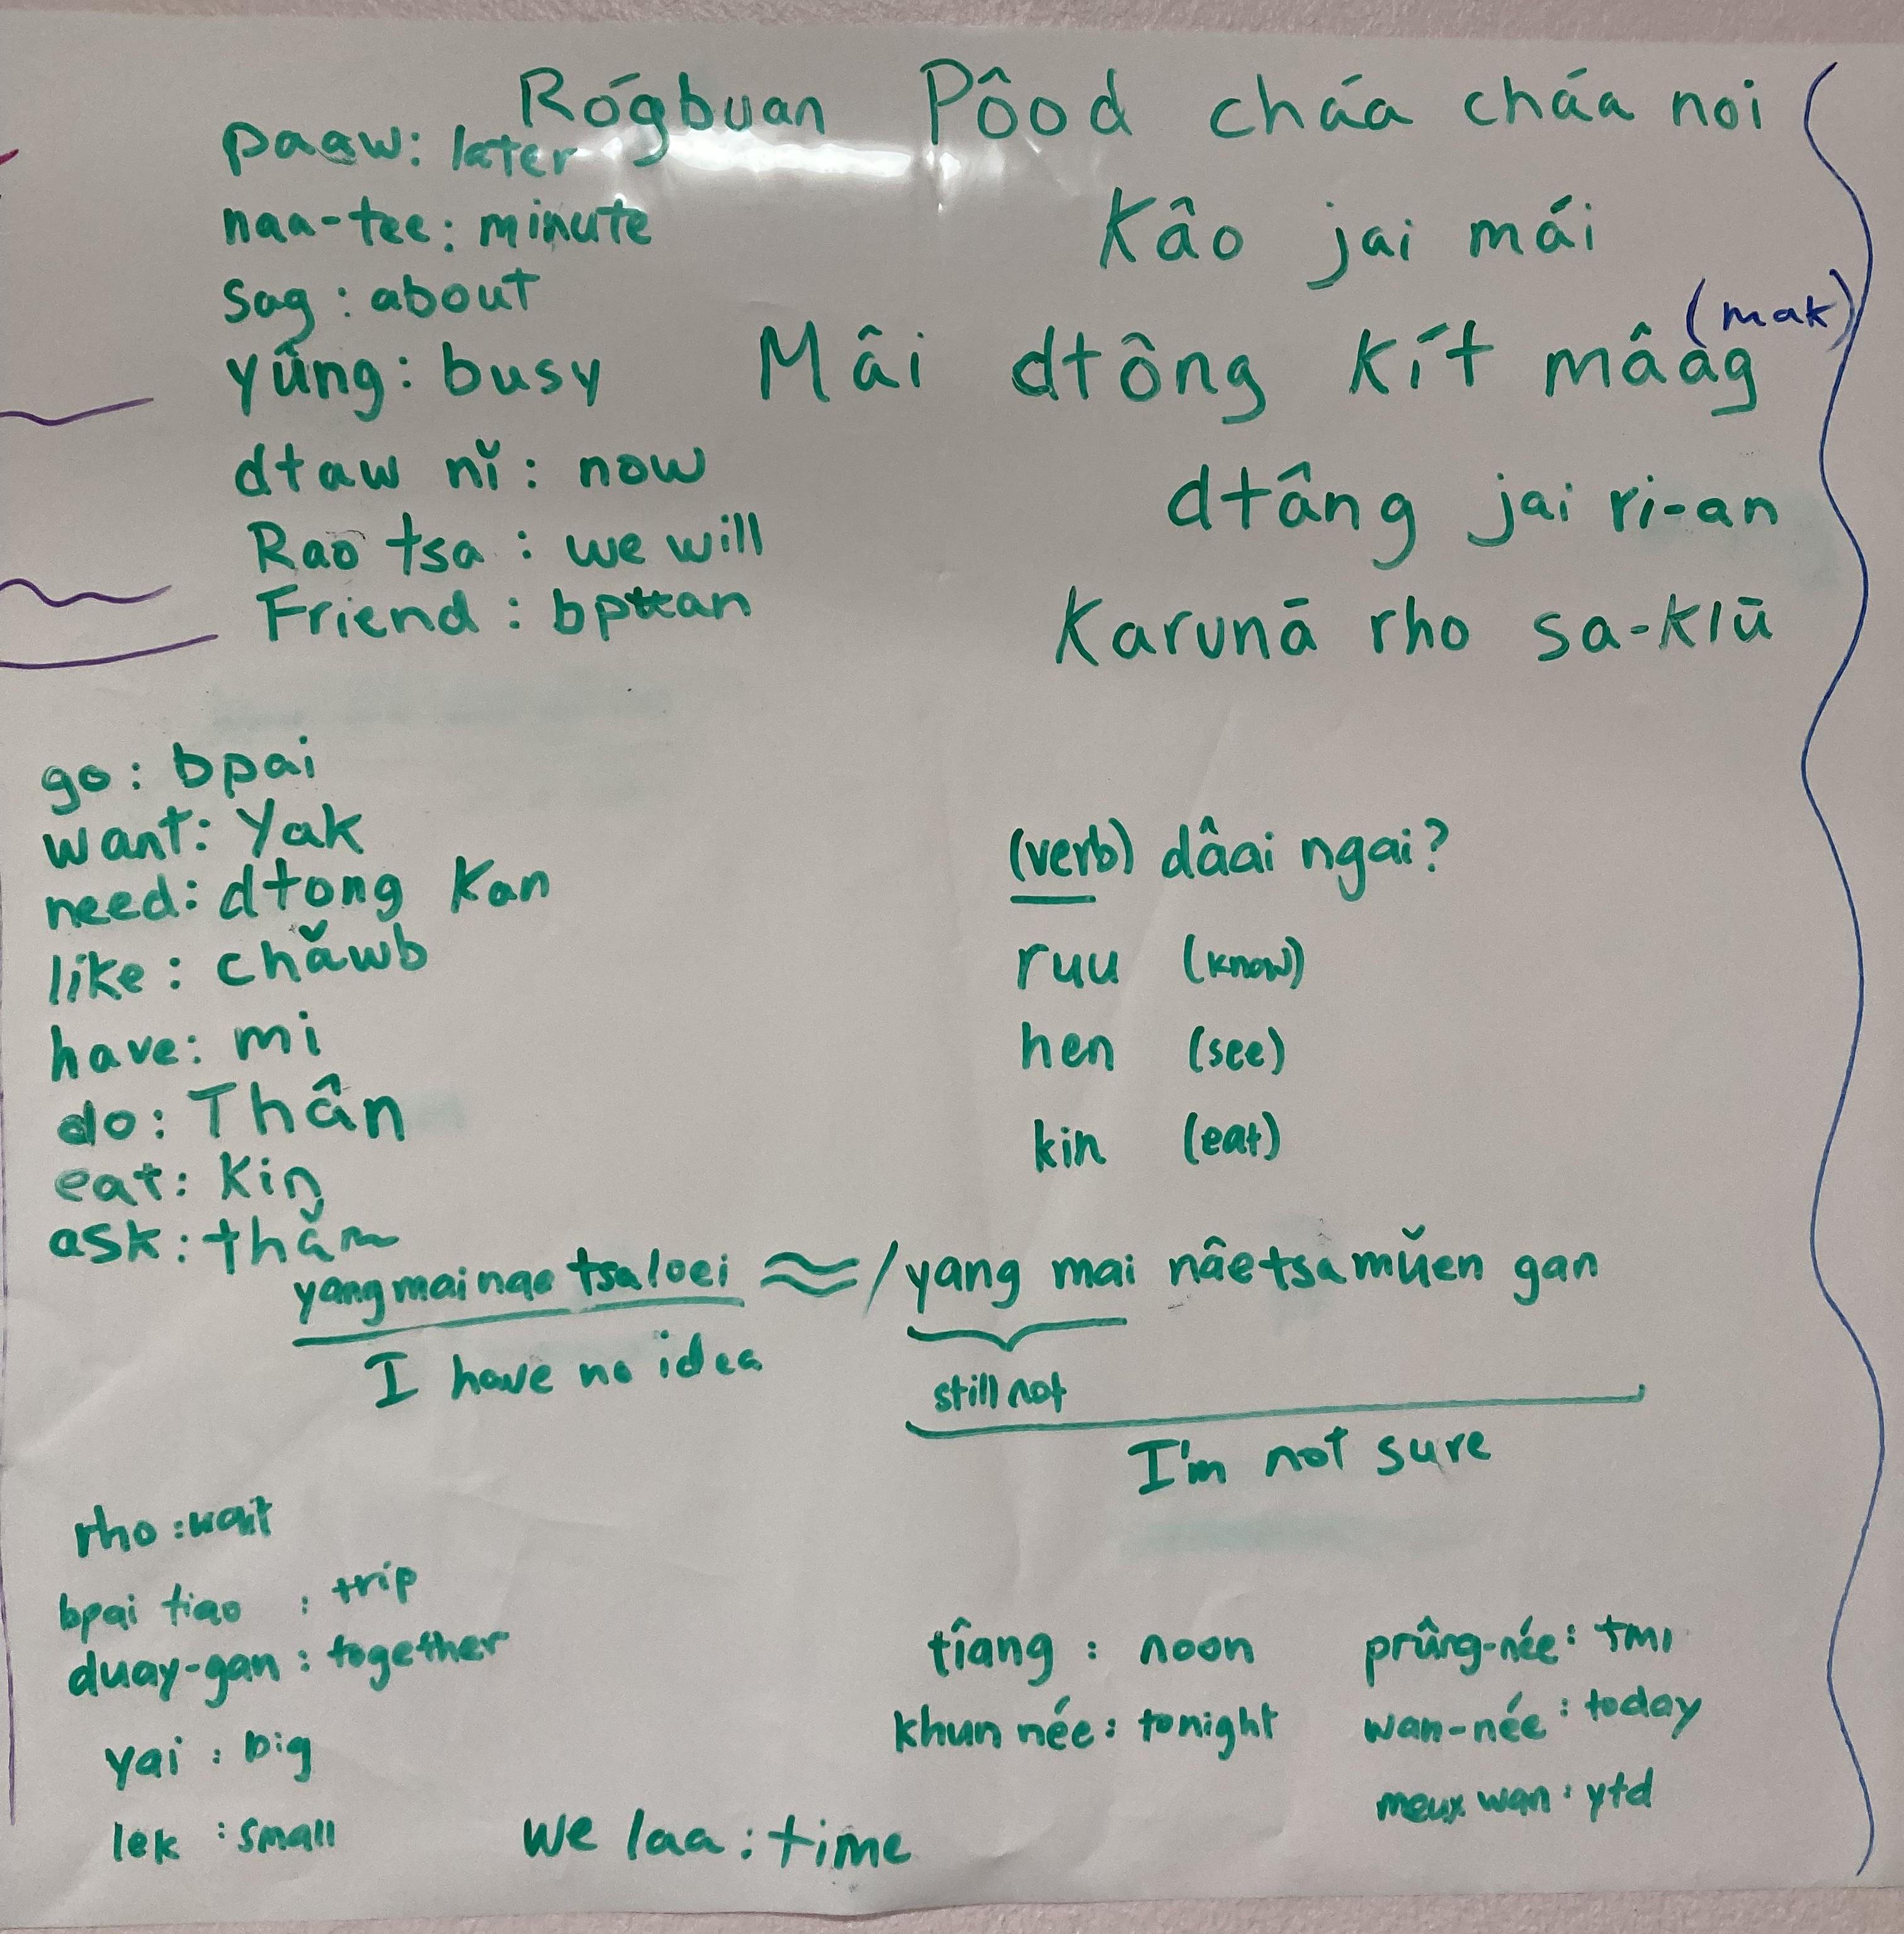 Rógbuan Pôod cháa cháa noi
paaw: later
naa-tee: minute
Kâo jai mái
sag: about
(mak)
yûng: busy
Mâi dtông kít mâag
dtaw nǐ: now
dtâng jai ri-an
Rao tsa: we will
Friend:
Karunā rho sa-klū
go: bpai
want: Yak
need: dtong Kan
like: chǎwb
have: mi
do: Thân
eat: Kin
ask: thǎm
(verb) dâai ngai?
ruu (know)
hen (see)
kin (eat)
yang mai nae tsa loei ≈ / yang mai nâe tsa mǔen gan
I have no idea
still not
I'm not sure
rho: wait
bpai tiao: trip
duay-gan: together
yai: big
lek: small
we laa: time
tîang: noon
khun née: tonight
prûng-née: tmr
wan-née: today
wan: ytd